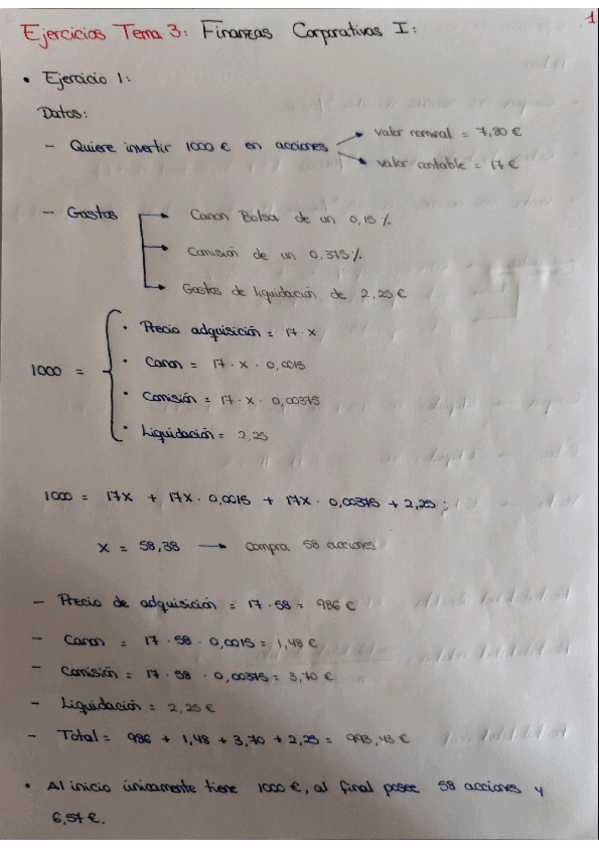 1
Ejercicios Tema 3: Finanzas Corporativas I:
• Ejercicio 1:
Datos:
- Quiere invertir 1000 € en acciones → valor nominal = 7,80 €
→ valor contable = 17 €
- Gastos → Canon Bolsa de un 0,15 %
→ Comisión de un 0,375 %
→ Gastos de liquidación de 2,25 €
1000 = { • Precio adquisición = 17 · x
• Canon = 17 · x · 0,0015
• Comisión = 17 · x · 0,00375
• Liquidación = 2,25
1000 = 17x + 17x · 0,0015 + 17x · 0,00375 + 2,25 ;
x = 58,38 → compra 58 acciones
- Precio de adquisición = 17 · 58 = 986 €
- Canon = 17 · 58 · 0,0015 = 1,48 €
- Comisión = 17 · 58 · 0,00375 = 3,70 €
- Liquidación = 2,25 €
- Total = 986 + 1,48 + 3,70 + 2,25 = 993,43 €
• Al inicio únicamente tiene 1000 €, al final posee 58 acciones y
6,57 €.